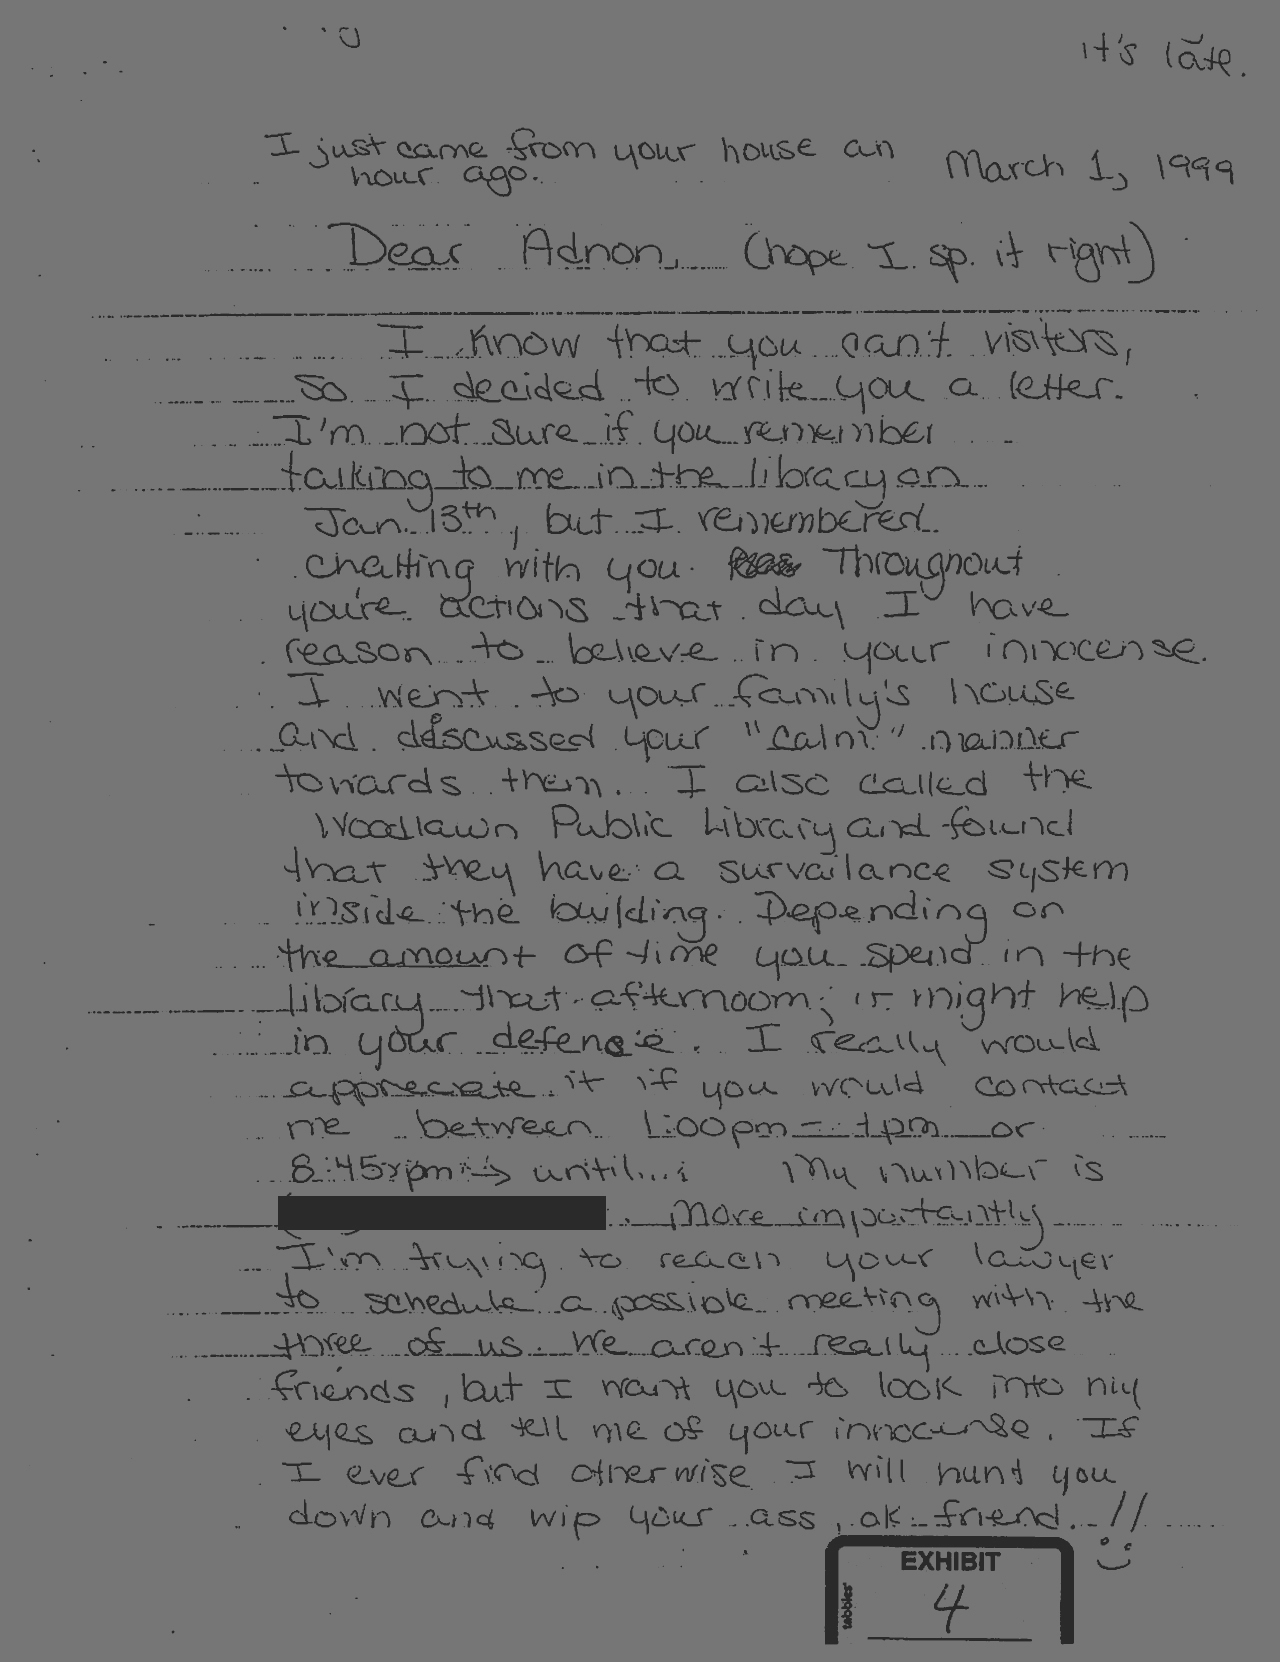 it's late.
I just came from your house an
hour ago.
March 1, 1999
Dear Adnon, (hope I sp. it right)
I know that you can't visitors,
so I decided to write you a letter.
I'm not sure if you remember
talking to me in the library on
Jan. 13th, but I remembered
chatting with you. Throughout
you're actions that day I have
reason to believe in your innocense.
I went to your family's house
and discussed your "calm" manner
towards them. I also called the
Woodlawn Public Library and found
that they have a survailance system
inside the building. Depending on
the amount of time you spend in the
library that afternoom, it might help
in your defence. I really would
appreciate it if you would contact
me between 1:00pm - 4pm or
8:45pm → until... My number is
. More importantly
I'm trying to reach your lawyer
to schedule a possible meeting with the
three of us. We aren't really close
friends, but I want you to look into my
eyes and tell me of your innocense. If
I ever find otherwise I will hunt you
down and wip your ass, ok friend. !!
EXHIBIT
4
tabbies'